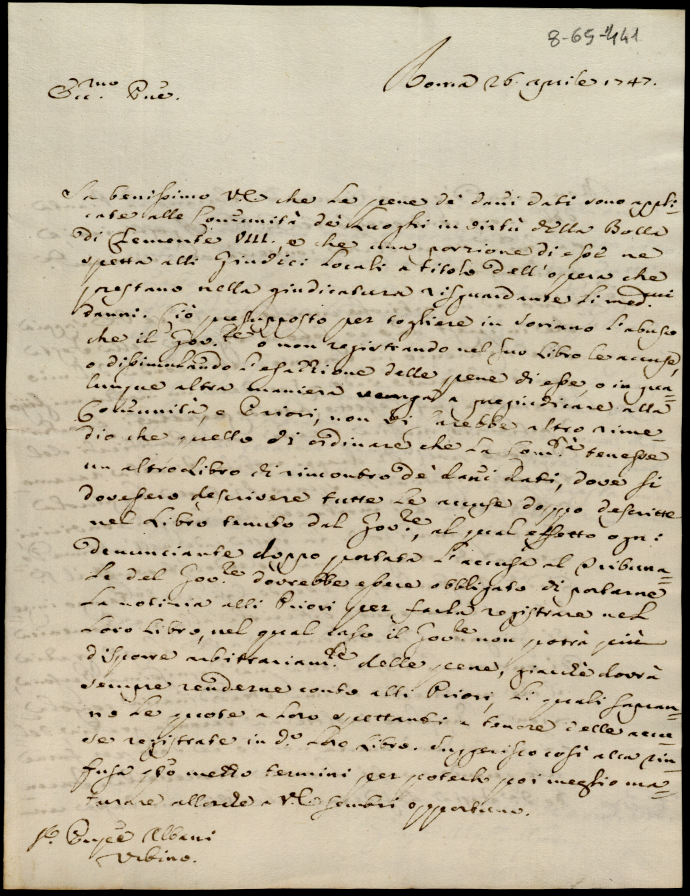 8-65-441
Roma 26. aprile 1747.
Ecc.mo Pne.
Sa benissimo V.E. che le pene de' danni dati sono appli-
cate alle Com̃unità de' Luoghi in virtù della Bolla
di Clemente VIII., e che una porzione di esse ne
spetta alli Giudici Locali a titolo dell'opera che
prestano nella giudicatura risguardante li med.mi
danni. Ciò presupposto per togliere in Soriano l'abuso
che il Gov.re o non registrando nel suo Libro le accuse,
o dissimulando l'esazzione delle pene di esse, o in qua-
lunque altra maniera venga a pregiudicare alla
Com̃unità, e Priori, non vi sarebbe altro rime-
dio che quello di ordinare che la Com.tà tenesse
un altro Libro di rincontro de' danni dati, dove si
dovessero descrivere tutte le accuse doppo descritte
nel Libro tenuto dal Gov.re, al qual effetto ogni
denunciante doppo portata l'accusa al Tribuna-
le del Gov.re dovrebbe essere obbligato di portarne
la notizia alli Priori per farla registrare nel
loro Libro, nel qual caso il Gov.re non potrà più
disporre arbitrariam.te delle pene, giacchè dovrà
sempre renderne conto alli Priori, li quali sapran-
no le quote a loro spettanti a tenore delle accu-
se registrate in d.o loro Libro. Suggerisco così alla rin-
fusa q.sto mezzo termini per poterlo poi meglio ma-
turare allorchè a V.E. sembri opportuno.
Pnpe Albani
Urbino.